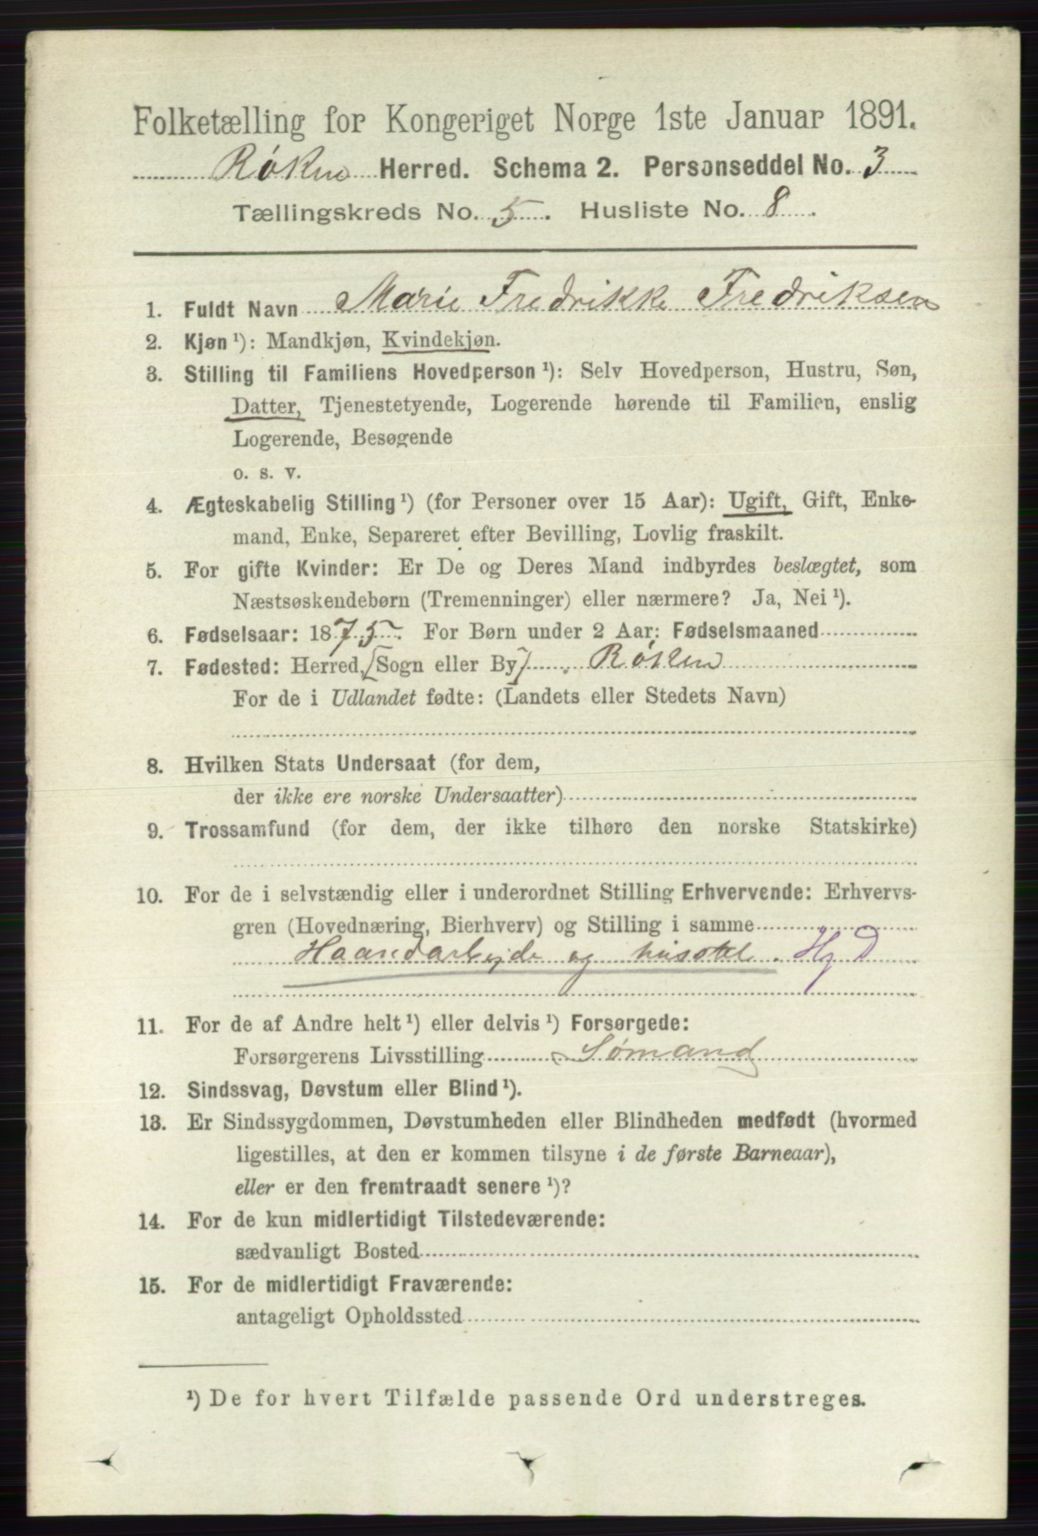 Folketælling for Kongeriget Norge 1ste Januar 1891.
Røken Herred. Schema 2. Personseddel No. 3
Tællingskreds No. 5. Husliste No. 8.
1. Fuldt Navn Marie Fredrikke Fredriksen
2. Kjøn ¹): Mandkjøn, Kvindekjøn.
3. Stilling til Familiens Hovedperson ¹): Selv Hovedperson, Hustru, Søn,
Datter, Tjenestetyende, Logerende hørende til Familien, enslig
Logerende, Besøgende
o. s. v.
4. Ægteskabelig Stilling ¹) (for Personer over 15 Aar): Ugift, Gift, Enke-
mand, Enke, Separeret efter Bevilling, Lovlig fraskilt.
5. For gifte Kvinder: Er De og Deres Mand indbyrdes beslægtet, som
Næstsøskendebørn (Tremenninger) eller nærmere? Ja, Nei ¹).
6. Fødselsaar: 1875. For Børn under 2 Aar: Fødselsmaaned
7. Fødested: Herred, [Sogn eller By] Røken
For de i Udlandet fødte: (Landets eller Stedets Navn)
8. Hvilken Stats Undersaat (for dem,
der ikke ere norske Undersaatter)
9. Trossamfund (for dem, der ikke tilhøre den norske Statskirke)
10. For de i selvstændig eller i underordnet Stilling Erhvervende: Erhvervs-
gren (Hovednæring, Bierhverv) og Stilling i samme
Haandarbejde og husstel. Hj D
11. For de af Andre helt ¹) eller delvis ¹) Forsørgede:
Forsørgerens Livsstilling Sømand
12. Sindssvag, Døvstum eller Blind ¹).
13. Er Sindssygdommen, Døvstumheden eller Blindheden medfødt (hvormed
ligestilles, at den er kommen tilsyne i de første Barneaar),
eller er den fremtraadt senere ¹)?
14. For de kun midlertidigt Tilstedeværende:
sædvanligt Bosted
15. For de midlertidigt Fraværende:
antageligt Opholdssted
¹) De for hvert Tilfælde passende Ord understreges.